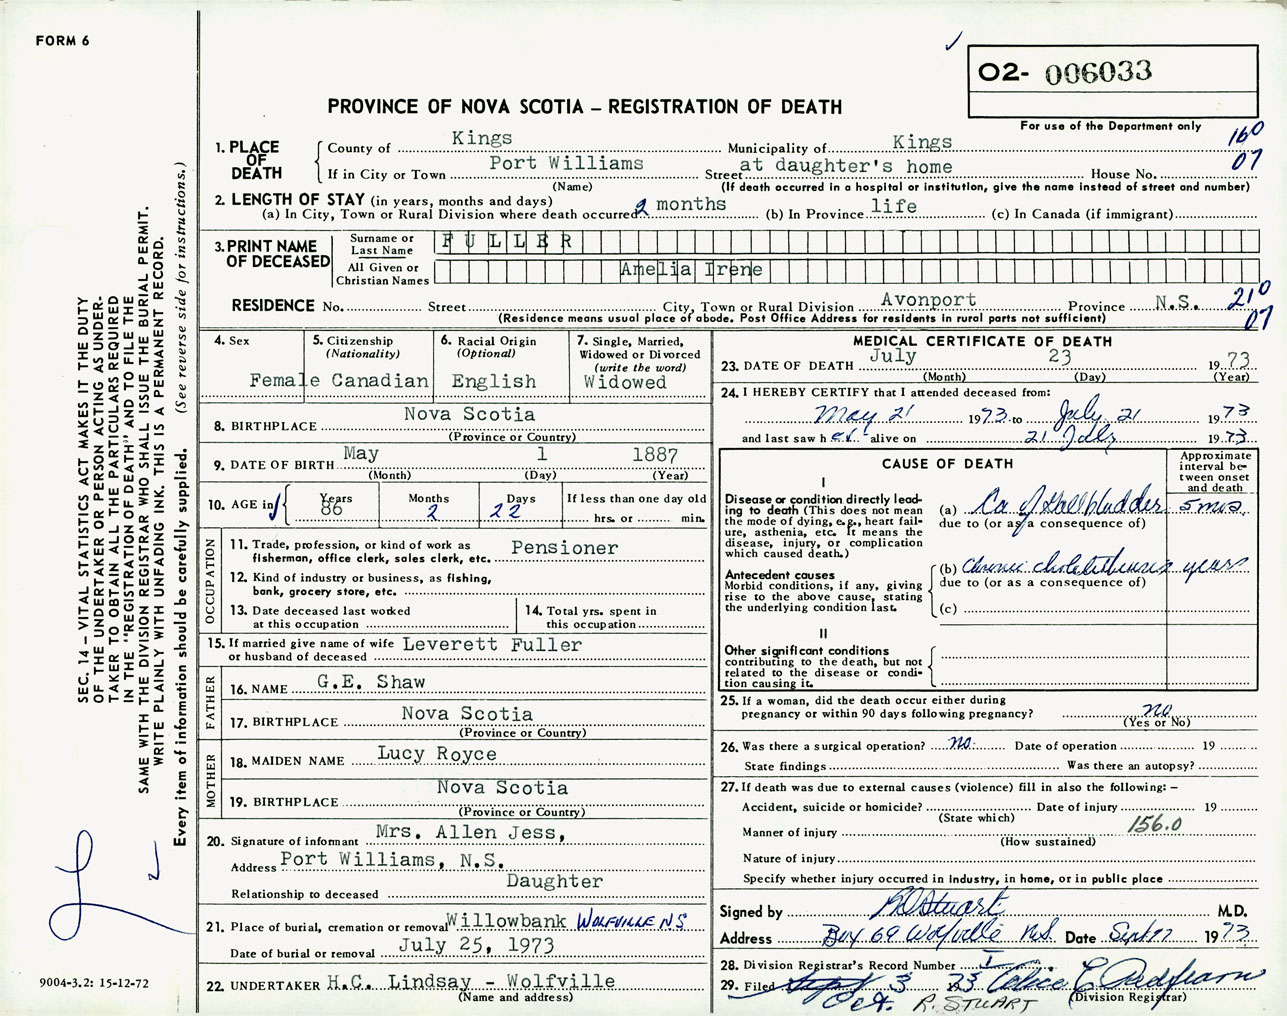 FORM 6
O2- 006033
PROVINCE OF NOVA SCOTIA – REGISTRATION OF DEATH
For use of the Department only
160
07
1. PLACE OF DEATH
County of Kings Municipality of Kings
If in City or Town Port Williams Street at daughter's home House No.
(Name) (If death occurred in a hospital or institution, give the name instead of street and number)
2. LENGTH OF STAY (in years, months and days)
(a) In City, Town or Rural Division where death occurred 2 months (b) In Province life (c) In Canada (if immigrant)
3. PRINT NAME OF DECEASED
Surname or Last Name FULLER
All Given or Christian Names Amelia Irene
RESIDENCE No. Street City, Town or Rural Division Avonport Province N.S. 210
07
(Residence means usual place of abode. Post Office Address for residents in rural parts not sufficient)
4. Sex
Female
5. Citizenship
(Nationality)
Canadian
6. Racial Origin
(Optional)
English
7. Single, Married,
Widowed or Divorced
(write the word)
Widowed
8. BIRTHPLACE Nova Scotia
(Province or Country)
9. DATE OF BIRTH May 1 1887
(Month) (Day) (Year)
10. AGE in
Years 86
Months 2
Days 22
If less than one day old
hrs. or min.
OCCUPATION
11. Trade, profession, or kind of work as
fisherman, office clerk, sales clerk, etc. Pensioner
12. Kind of industry or business, as fishing,
bank, grocery store, etc.
13. Date deceased last worked
at this occupation
14. Total yrs. spent in
this occupation
15. If married give name of wife
or husband of deceased Leverett Fuller
FATHER
16. NAME G.E. Shaw
17. BIRTHPLACE Nova Scotia
(Province or Country)
MOTHER
18. MAIDEN NAME Lucy Royce
19. BIRTHPLACE Nova Scotia
(Province or Country)
20. Signature of informant Mrs. Allen Jess,
Address Port Williams, N.S.
Relationship to deceased Daughter
21. Place of burial, cremation or removal Willowbank WOLFVILLE NS
Date of burial or removal July 25, 1973
22. UNDERTAKER H.C. Lindsay - Wolfville
(Name and address)
MEDICAL CERTIFICATE OF DEATH
23. DATE OF DEATH July 23 1973
(Month) (Day) (Year)
24. I HEREBY CERTIFY that I attended deceased from:
May 21 1973 to July 21 1973
and last saw her alive on 21 July 1973
CAUSE OF DEATH
Approximate interval between onset and death
I
Disease or condition directly lead-
ing to death (This does not mean
the mode of dying, e.g., heart fail-
ure, asthenia, etc. It means the
disease, injury, or complication
which caused death.)
(a) Ca of Gallbladder 5 mos.
due to (or as a consequence of)
Antecedent causes
Morbid conditions, if any, giving
rise to the above cause, stating
the underlying condition last.
(b) Chronic cholelithiasis years
due to (or as a consequence of)
(c)
II
Other significant conditions
contributing to the death, but not
related to the disease or condi-
tion causing it.
25. If a woman, did the death occur either during
pregnancy or within 90 days following pregnancy? no
(Yes or No)
26. Was there a surgical operation? no. Date of operation 19
State findings Was there an autopsy?
27. If death was due to external causes (violence) fill in also the following: –
Accident, suicide or homicide? Date of injury 19
(State which)
Manner of injury 156.0
(How sustained)
Nature of injury
Specify whether injury occurred in industry, in home, or in public place
Signed by Stuart M.D.
Address Box 69 Wolfville N.S. Date Sept 1973
28. Division Registrar's Record Number 1
29. Filed Sept 3 1973
Oct. R. STUART (Division Registrar)
SEC. 14 – VITAL STATISTICS ACT MAKES IT THE DUTY
OF THE UNDERTAKER OR PERSON ACTING AS UNDER-
TAKER TO OBTAIN ALL THE PARTICULARS REQUIRED
IN THE "REGISTRATION OF DEATH" AND TO FILE THE
SAME WITH THE DIVISION REGISTRAR WHO SHALL ISSUE THE BURIAL PERMIT.
WRITE PLAINLY WITH UNFADING INK. THIS IS A PERMANENT RECORD.
Every item of information should be carefully supplied. (See reverse side for instructions.)
9004-3.2: 15-12-72